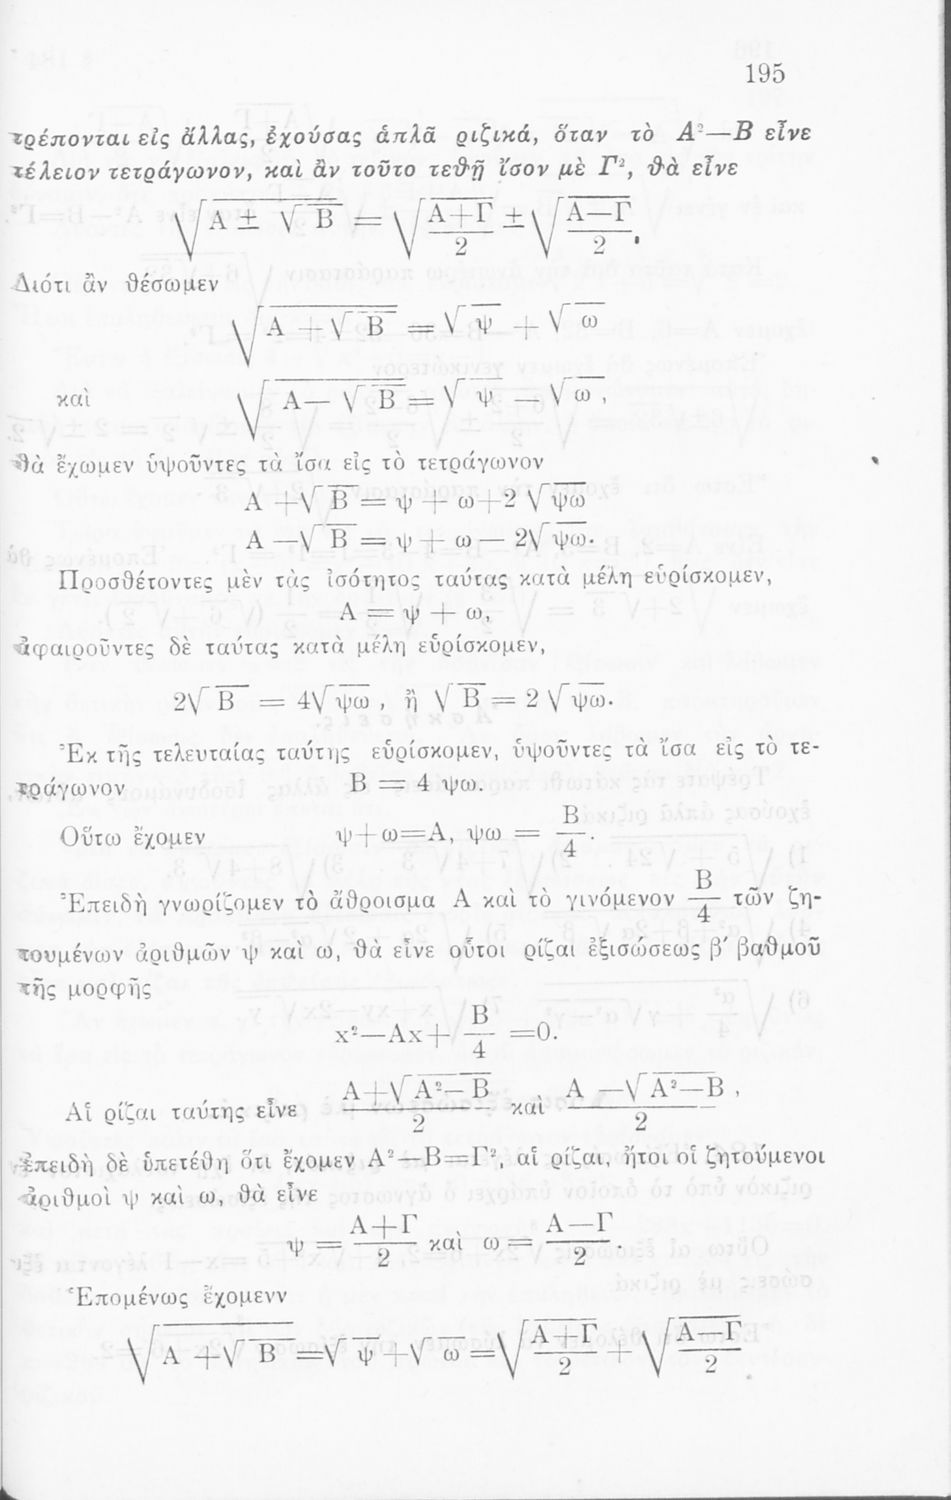 195
τρέπονται εἰς ἄλλας, ἐχούσας ἁπλᾶ ριζικά, ὅταν τὸ Α²—Β εἶνε
τέλειον τετράγωνον, καὶ ἂν τοῦτο τεθῇ ἴσον μὲ Γ², θὰ εἶνε
√(Α ± √Β) = √((Α+Γ)/2) ± √((Α—Γ)/2).
Διότι ἂν θέσωμεν
√(Α + √Β) = √ψ + √ω
καὶ √(Α— √Β) = √ψ — √ω ,
θὰ ἔχωμεν ὑψοῦντες τὰ ἴσα εἰς τὸ τετράγωνον
Α +√Β = ψ + ω+2 √ψω
Α —√Β = ψ + ω — 2√ψω.
Προσθέτοντες μὲν τὰς ἰσότητος ταύτας κατὰ μέλη εὑρίσκομεν,
Α = ψ + ω,
ἀφαιροῦντες δὲ ταύτας κατὰ μέλη εὑρίσκομεν,
2√Β = 4√ψω , ἢ √Β = 2 √ψω.
Ἐκ τῆς τελευταίας ταύτης εὑρίσκομεν, ὑψοῦντες τὰ ἴσα εἰς τὸ τε-
τράγωνον Β = 4 ψω.
Οὕτω ἔχομεν ψ+ω=Α, ψω = Β/4.
Ἐπειδὴ γνωρίζομεν τὸ ἄθροισμα Α καὶ τὸ γινόμενον Β/4 τῶν ζη-
τουμένων ἀριθμῶν ψ καὶ ω, θὰ εἶνε οὗτοι ρίζαι ἐξισώσεως β′ βαθμοῦ
τῆς μορφῆς
x²—Ax+ Β/4 =0.
Αἱ ρίζαι ταύτης εἶνε (Α+√(Α²—Β))/2 καὶ (Α —√(Α²—Β))/2 ,
ἐπειδὴ δὲ ὑπετέθη ὅτι ἔχομεν Α²—Β=Γ², αἱ ρίζαι, ἤτοι οἱ ζητούμενοι
ἀριθμοὶ ψ καὶ ω, θὰ εἶνε
ψ = (Α+Γ)/2 καὶ ω = (Α—Γ)/2 .
Ἑπομένως ἔχομενν
√(Α +√Β) =√ψ +√ω =√((Α+Γ)/2) + √((Α—Γ)/2)